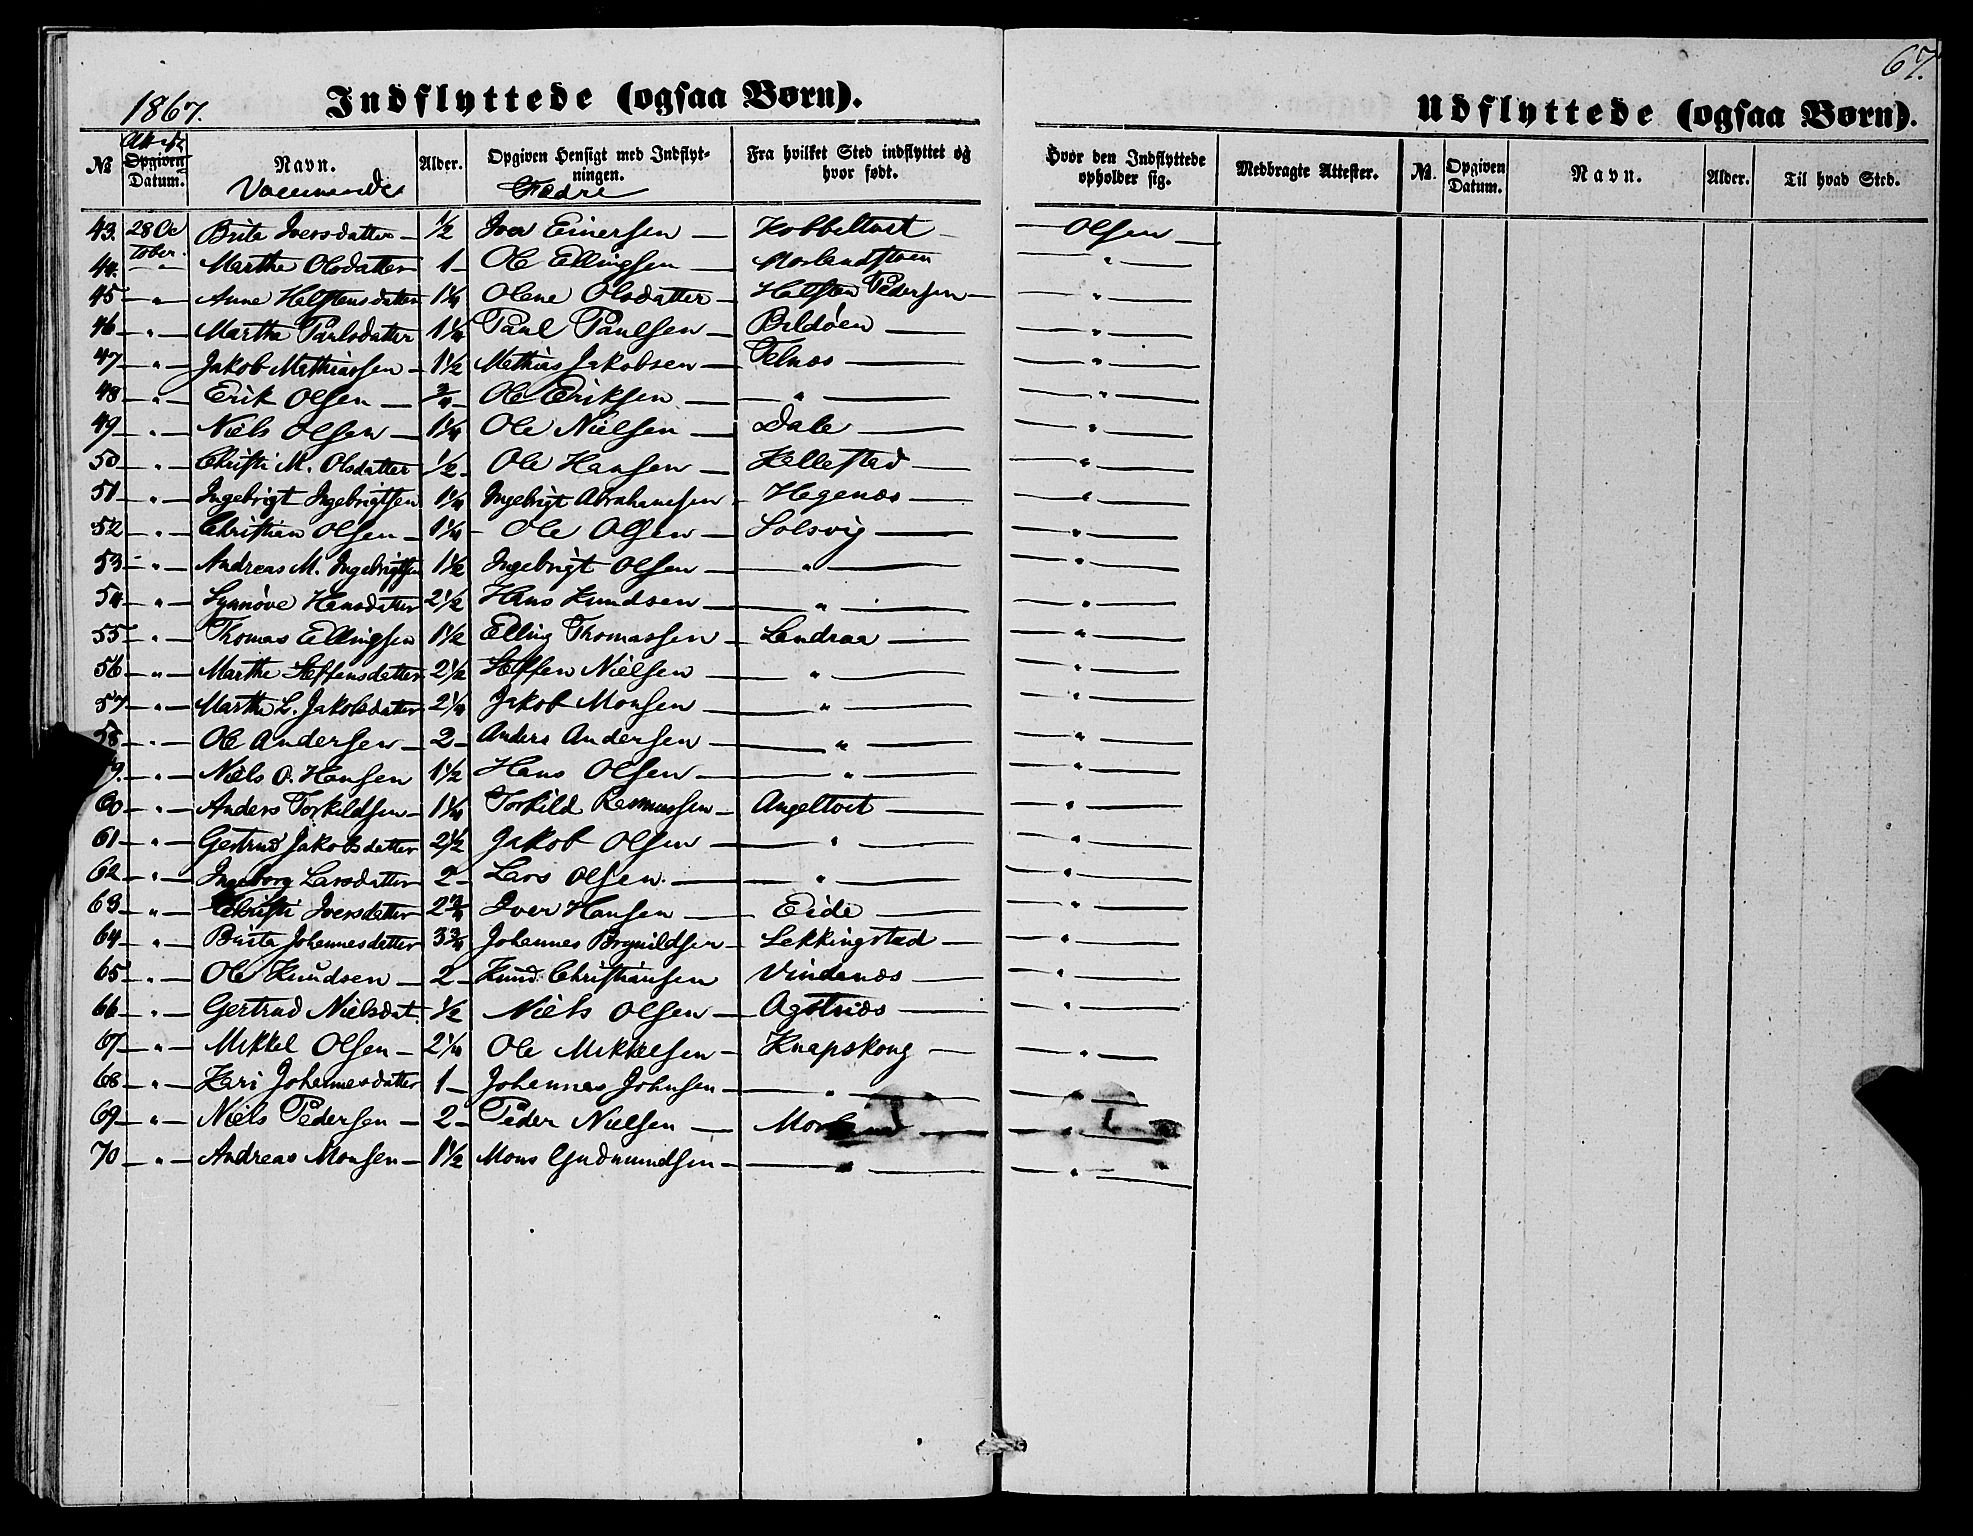 67.
1867. Indflyttede (ogsaa Børn). Udflyttede (ogsaa Børn).
No Opgiven Datum. Navn. Alder. Opgiven Hensigt med Indflytningen. Fra hvilket Sted indflyttet og hvor født. Hvor den Indflyttede opholder sig. Medbragte Attester. No. Opgiven Datum. Navn. Alder. Til hvad Sted.
Fædre
43. 28 Oc tober. Brite Iversdatter — 1/2 Iver Einersen — Kobbeltvet — Olsen —
44. " Marthe Olsdatter 1 — Ole Ellingsen — Morlandstøen — " —
45 — " — Anne Helstensdatter 1 1/4 Olene Olsdatter — Halsten Pedersen — " —
46 — " — Martha Paulsdatter 1 1/4 Paul Paulsen — Bildøen — " —
47 — " — Jakob Mathiassen — 1 1/2 Mathias Jakobsen — Telnæs — " —
48 — " — Erik Olsen — 3/4 — Ole Eriksen — " — " —
49 — " — Niels Olsen — 1 1/4 Ole Nielsen — Dale — " —
50 — " — Christi M. Olsdatter 1/2 — Ole Hansen — Hellestad — " —
51 — " — Ingebrigt Ingebrigtsen 1 1/4 Ingebrigt Abrahamsen — Hegenæs — " —
52 — " — Christian Olsen — 1 1/4 — Ole Olsen — Solsvig — " —
53 — " — Andreas M. Ingebrigtsen 1 1/2 Ingebrigt Olsen — " — " —
54 — " — Synnøve Hansdatter 2 1/2 Hans Knudsen — " — " —
55 — " — Thomas Ellingsen 1 1/2 Elling Thomassen — Landraa — " —
56 — " — Marthe Steffensdatter 2 1/2 Steffen Nielsen — " — " —
57 — " — Marthe L. Jakobsdatter 2 1/4 Jakob Monsen — " — " —
58 — " — Ole Andersen — 2 — Anders Andersen — " — " —
9. — " — Niels O. Hansen 1 1/2 Hans Olsen — " — " —
60 — " — Anders Torkildsen — 1 1/4 Torkild Rasmussen — Angeltvet — " —
61 — " — Gertrud Jakobsdatter 2 1/2 Jakob Olsen — " — " —
62 — " — Ingeborg Larsdatter 2 — Lars Olsen. — " — " —
63 — " — Christi Iversdatter 2 3/4 Iver Hansen — Eide — " —
64 — " — Brita Johannesdatter 3 3/4 Johannes Brynildsen — Lekkingstad — " —
65 — " — Ole Knudsen — 2 — Knud Christiansen Vindenæs — " —
66 — " — Gertrud Nielsdat. 1/2 Niels Olsen — Agotnæs — " —
67 — " — Mikkel Olsen — 2 1/4 Ole Mikkelsen — Knapskong — " —
68 — " — Kari Johannesdatter 1 — Johannes Johnsen — " — " —
69 — " — Niels Pedersen — 2 — Peder Nielsen — Morland — " —
70 — " — Andreas Monsen — 1 1/2 Mons Gudmundsen — " — " —